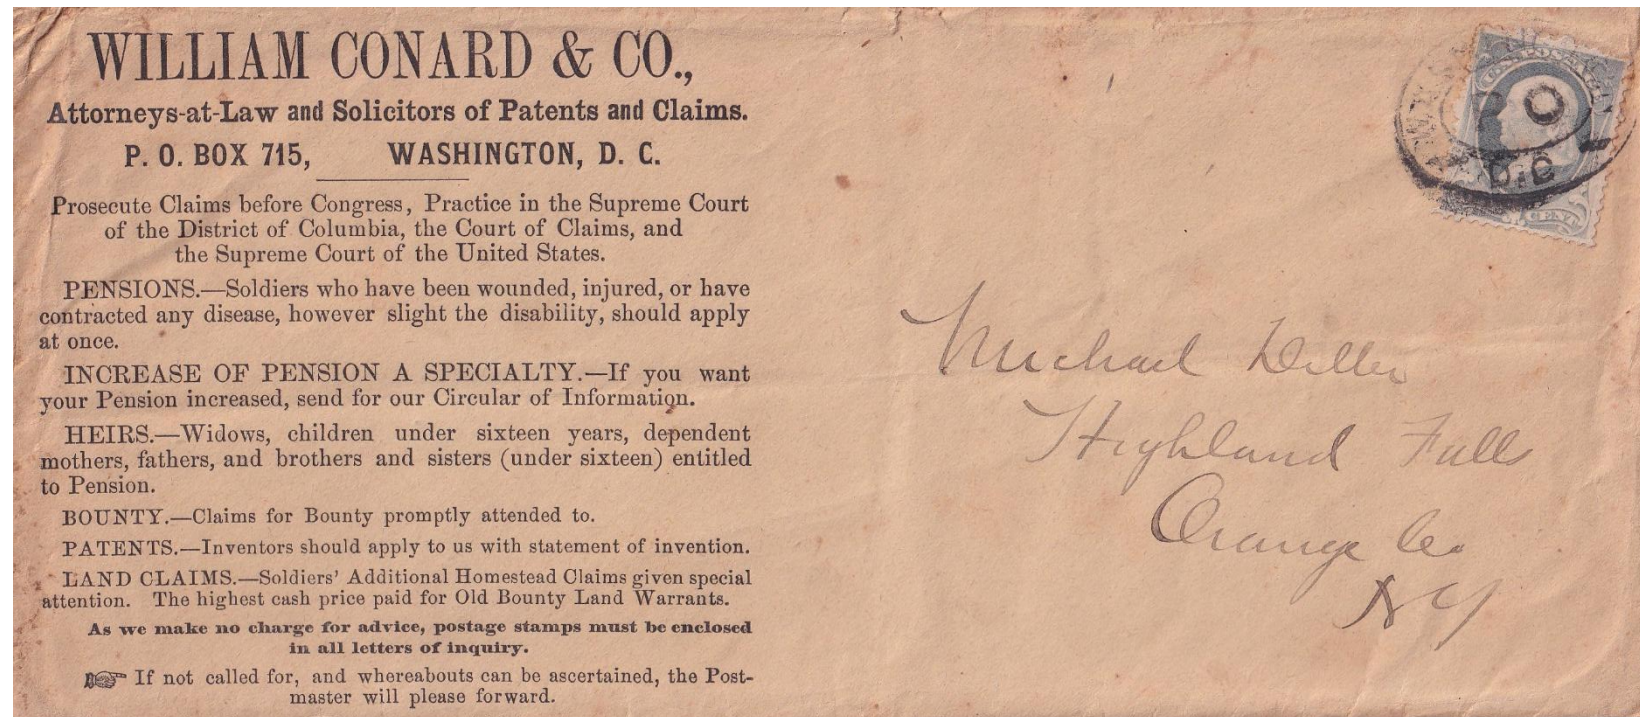 WILLIAM CONARD & CO.,
Attorneys-at-Law and Solicitors of Patents and Claims.
P. O. BOX 715, WASHINGTON, D. C.
Prosecute Claims before Congress, Practice in the Supreme Court
of the District of Columbia, the Court of Claims, and
the Supreme Court of the United States.
PENSIONS.—Soldiers who have been wounded, injured, or have
contracted any disease, however slight the disability, should apply
at once.
INCREASE OF PENSION A SPECIALTY.—If you want
your Pension increased, send for our Circular of Information.
HEIRS.—Widows, children under sixteen years, dependent
mothers, fathers, and brothers and sisters (under sixteen) entitled
to Pension.
BOUNTY.—Claims for Bounty promptly attended to.
PATENTS.—Inventors should apply to us with statement of invention.
LAND CLAIMS.—Soldiers' Additional Homestead Claims given special
attention. The highest cash price paid for Old Bounty Land Warrants.
As we make no charge for advice, postage stamps must be enclosed
in all letters of inquiry.
☞ If not called for, and whereabouts can be ascertained, the Post-
master will please forward.
D.C
Michael
Highland Falls
Orange Co
NY